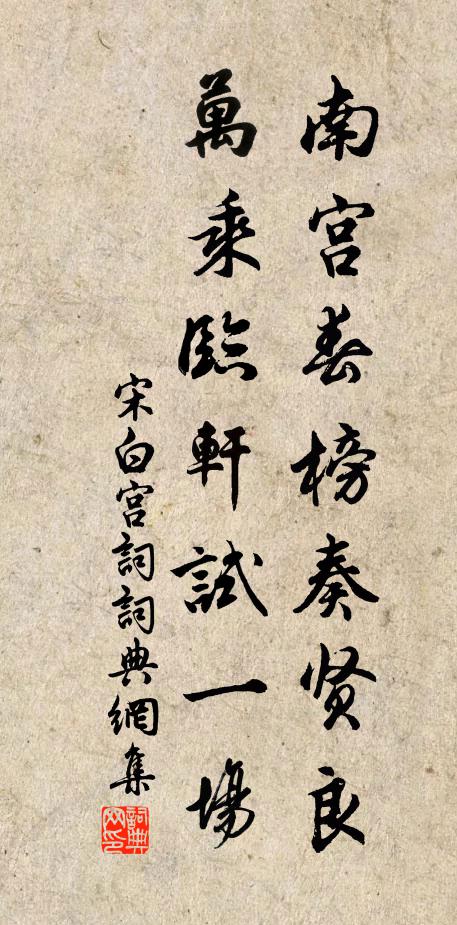 南宫春榜奏贤良
萬乘臨軒試一場
宋白宫詞詞典網集
詞典
网印